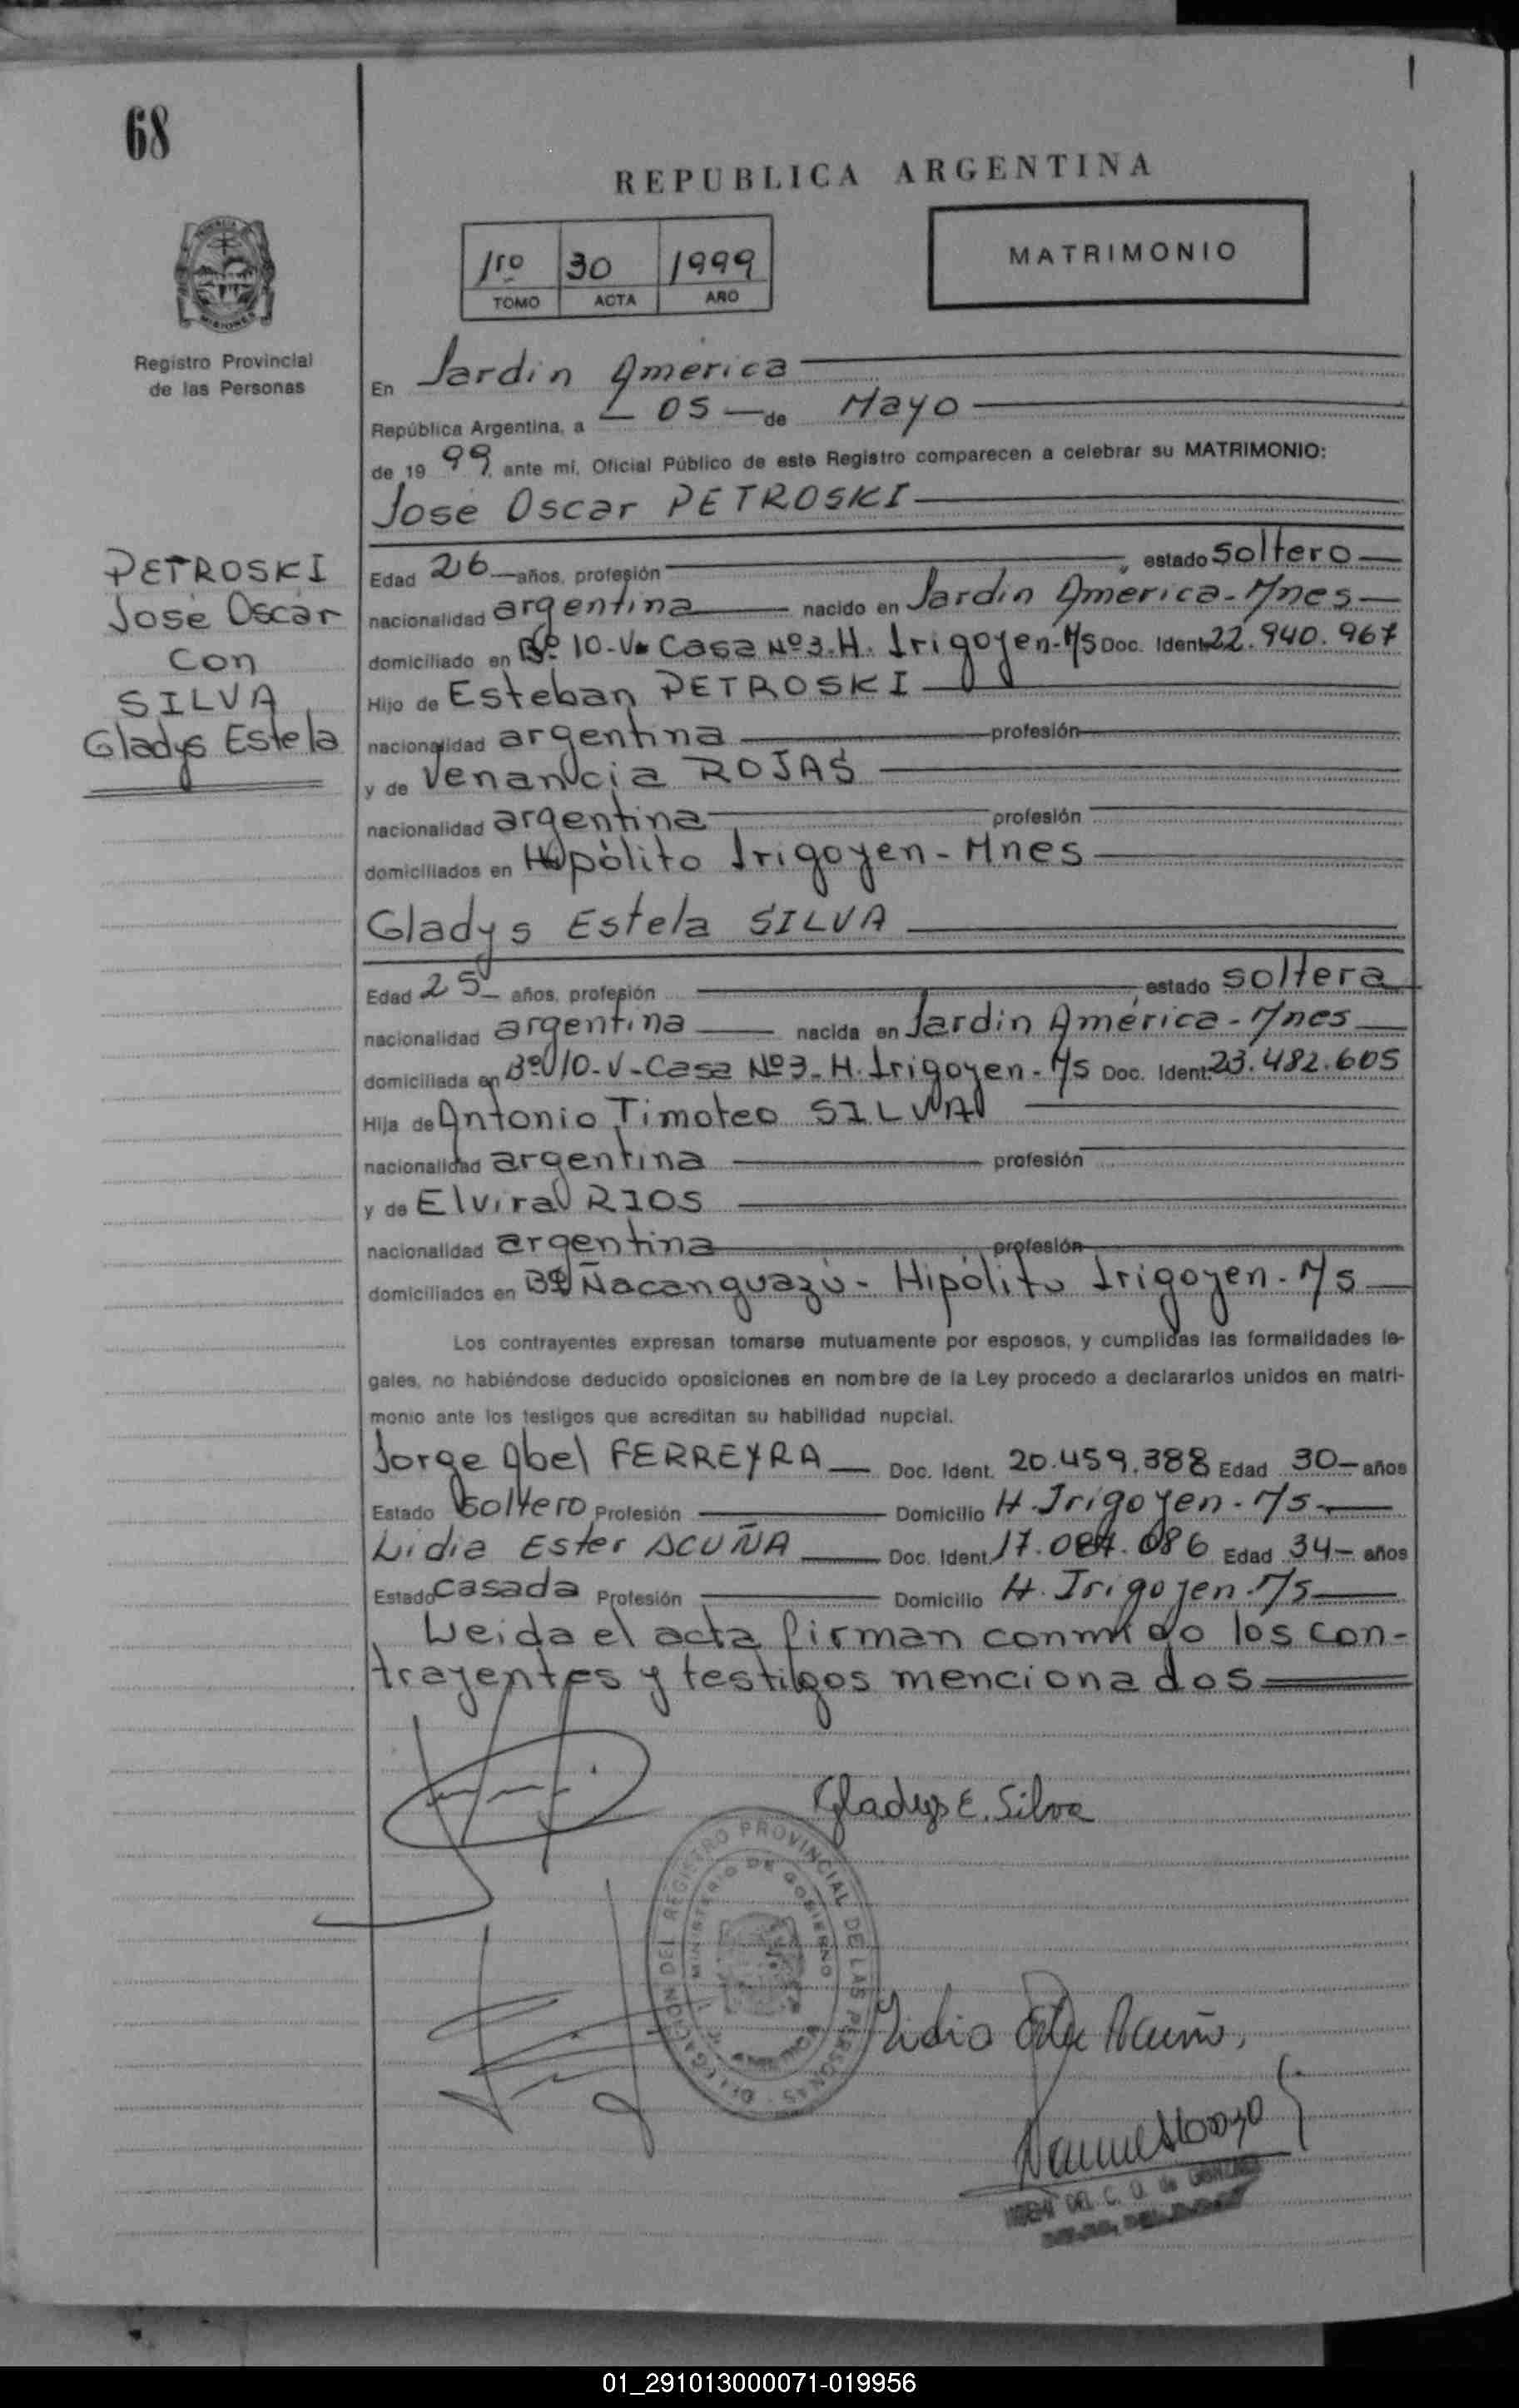 68
REPUBLICA ARGENTINA
1ro 30 1999
TOMO ACTA AÑO
MATRIMONIO
Registro Provincial
de las Personas
PETROSKI
José Oscar
Con
SILVA
Gladys Estela
En Jardin America
República Argentina, a 05 de Mayo
de 1999, ante mí, Oficial Público de este Registro comparecen a celebrar su MATRIMONIO:
José Oscar PETROSKI
Edad 26 años, profesión estado soltero
nacionalidad argentina nacido en Jardin América - Mnes
domiciliado en Bº 10-V- Casa Nº3-H. Irigoyen-M/s Doc. Ident. 22.940.967
Hijo de Esteban PETROSKI
nacionalidad argentina profesión
y de Venancia ROJAS
nacionalidad argentina profesión
domiciliados en Hipólito Irigoyen - Mnes
Gladys Estela SILVA
Edad 25 años, profesión estado soltera
nacionalidad argentina nacida en Jardin América - Mnes
domiciliada en Bº 10-V-Casa Nº3-H. Irigoyen-M/s Doc. Ident. 23.482.605
Hija de Antonio Timoteo SILVA
nacionalidad argentina profesión
y de Elvira RIOS
nacionalidad argentina profesión
domiciliados en Bº Ñacanguazú - Hipólito Irigoyen - M/s
Los contrayentes expresan tomarse mutuamente por esposos, y cumplidas las formalidades le-
gales, no habiéndose deducido oposiciones en nombre de la Ley procedo a declararlos unidos en matri-
monio ante los testigos que acreditan su habilidad nupcial.
Jorge Abel FERREYRA Doc. Ident. 20.459.388 Edad 30 años
Estado soltero Profesión Domicilio H. Irigoyen - M/s
Lidia Ester ACUÑA Doc. Ident. 17.084.086 Edad 34 años
Estado casada Profesión Domicilio H. Irigoyen - M/s
Leida el acta firman conmigo los con-
trayentes y testigos mencionados
Gladys E. Silva
DELEGACION DEL REGISTRO PROVINCIAL DE LAS PERSONAS
MINISTERIO DE GOBIERNO
Lidia Ester Acuña
DEL C. D. de
01_291013000071-019956